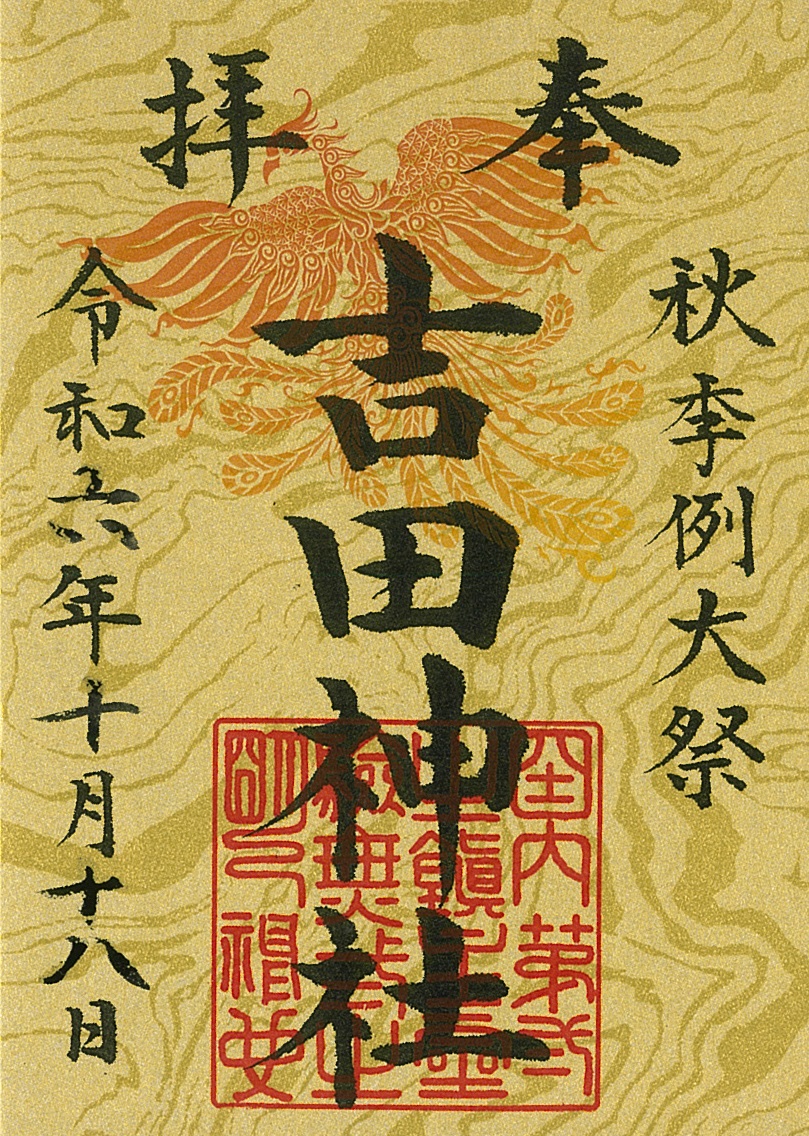 奉拝
秋季例大祭
吉田神社
令和六年十月十八日